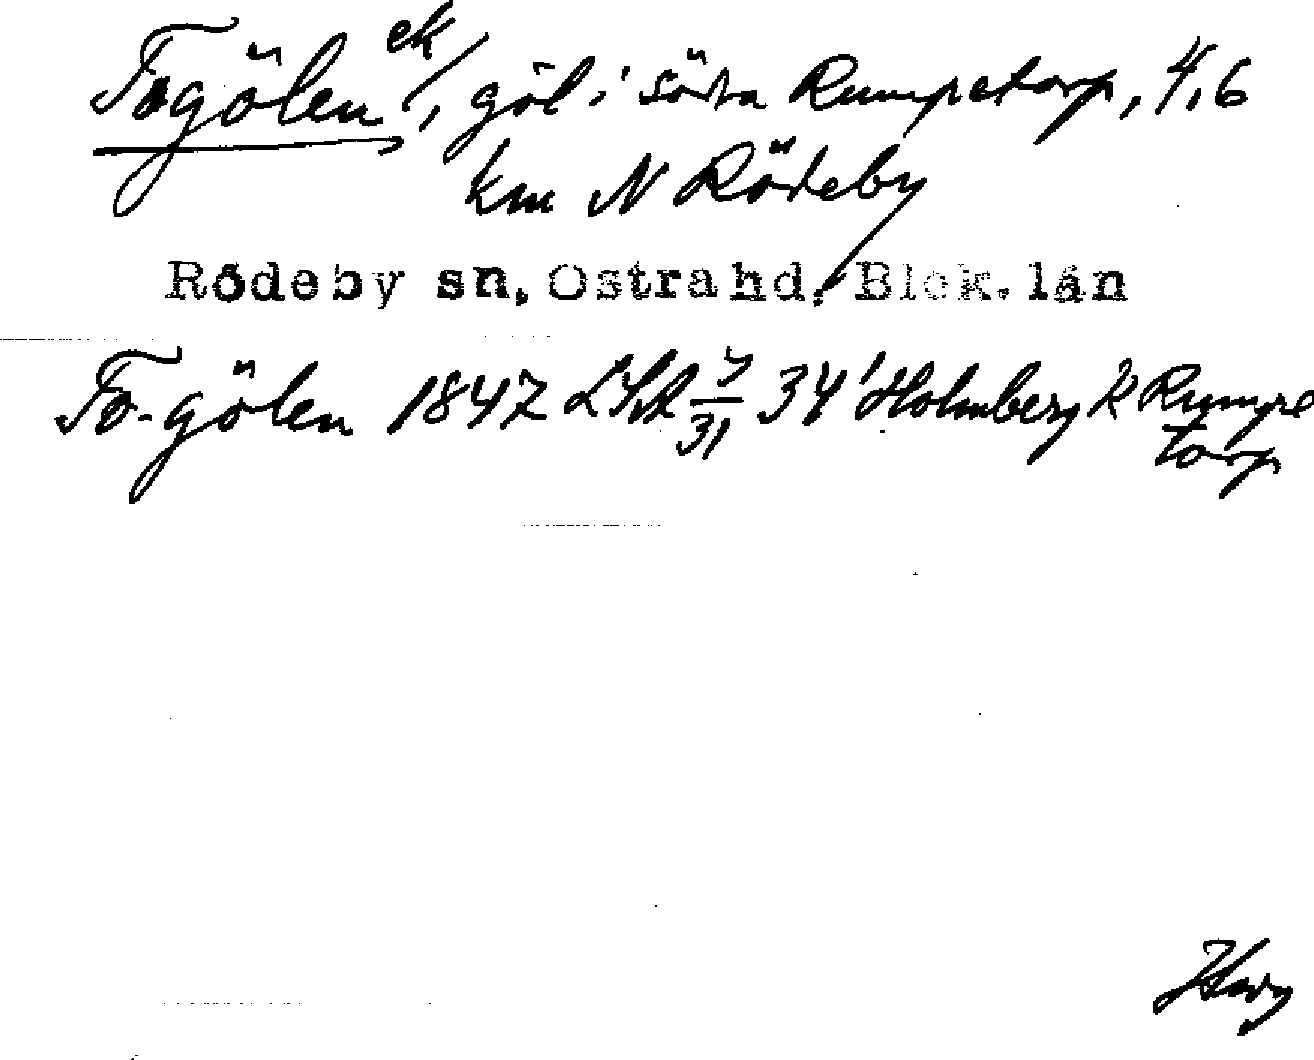 Fogölen ek/, göl i södra Rumpetorp, 4,6
km N Rödeby
Rödeby sn, Östra hd, Blek. län
Fo-gölen 1847 LSA 34 Holmberg k Rumpe
torp